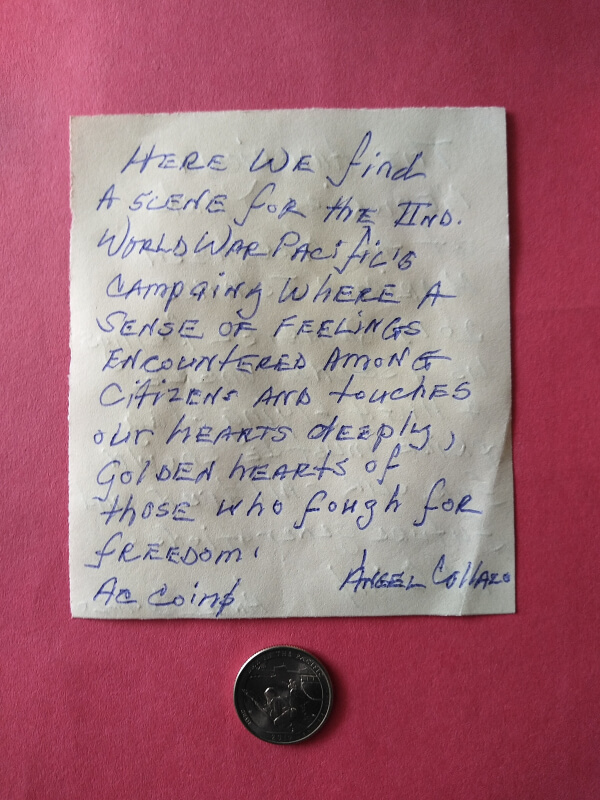 HERE WE find
A SCENE for the IInd.
WORLD WAR Pacific's
CAMPAING WHERE A
SENSE OF FEELINGS
ENCOUNTERED AMONG
CitizENs AND touCHES
our HEARTS dEEply,
GoldEN hEARTS of
thosE who fough foR
fREEDOM.
AC Coin$
ANGEL Collazo
THE PACIFIC